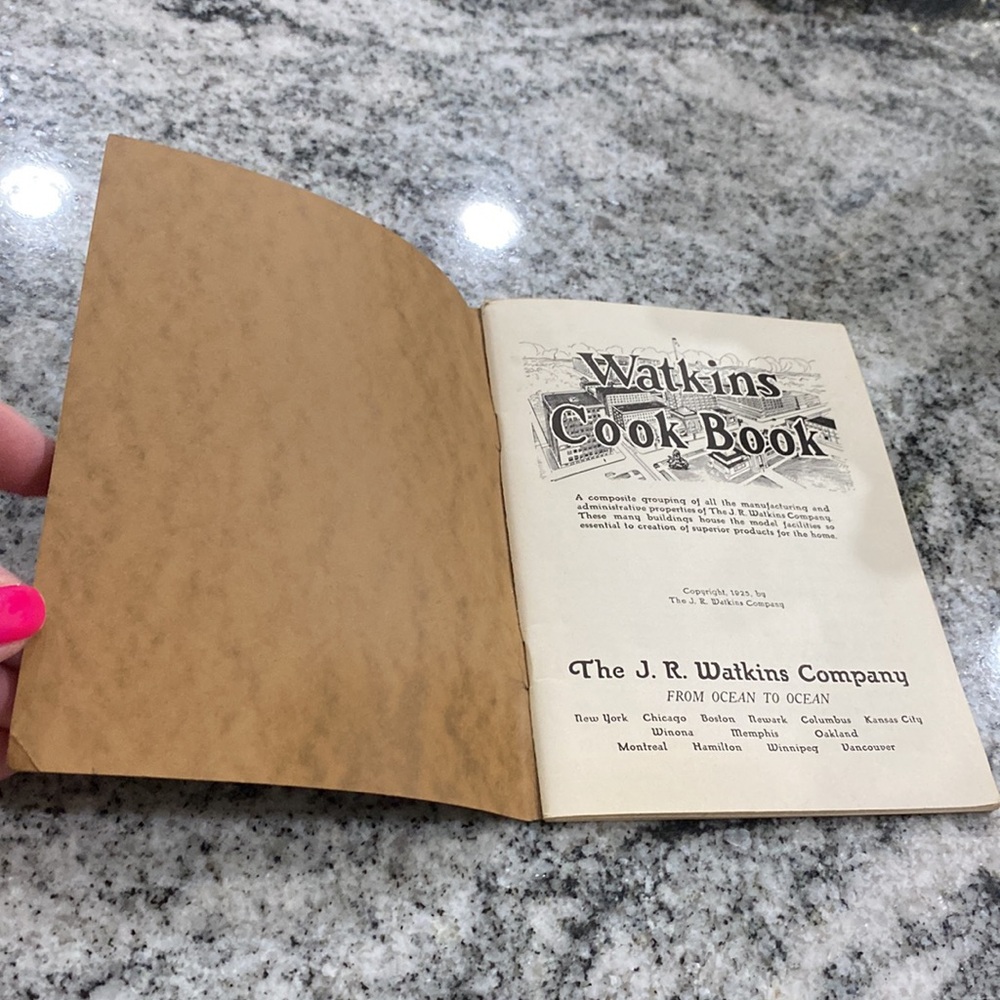 Watkins
Cook Book
A composite grouping of all the manufacturing and
administrative properties of The J. R. Watkins Company.
These many buildings house the model facilities so
essential to creation of superior products for the home.
Copyright, 1925, by
The J. R. Watkins Company
The J. R. Watkins Company
FROM OCEAN TO OCEAN
New York Chicago Boston Newark Columbus Kansas City
Winona Memphis Oakland
Montreal Hamilton Winnipeg Vancouver